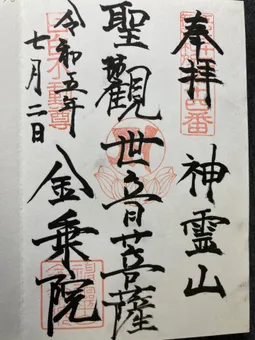 奉拝
神霊山
聖観世音菩薩
金乗院
令和五年
七月二日